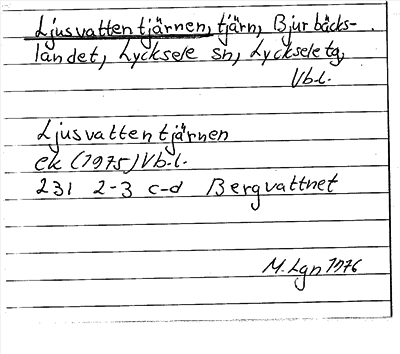 Ljusvattentjärnen, tjärn, Bjurbäcks-
landet, Lycksele sn, Lycksele tg,
Vb.l.
Ljusvattentjärnen
ek (1975) Vb.l.
231 2-3 c-d Bergvattnet
M. Lgn 1976